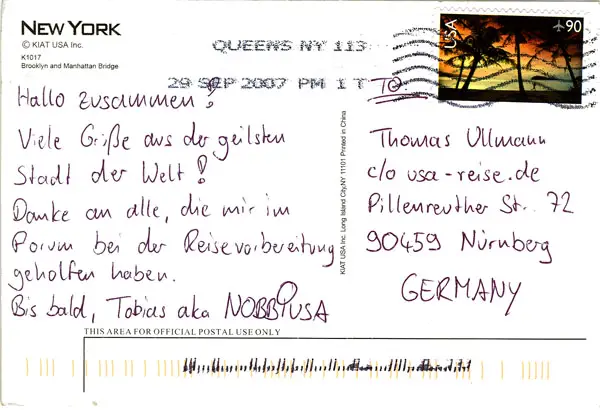 NEW YORK
© KIAT USA Inc.
K1017
Brooklyn and Manhattan Bridge
QUEENS NY 113
29 SEP 2007 PM 1 T
USA
90
Hallo zusammen!
Viele Grüße aus der geilsten
Stadt der Welt!
Danke an alle, die mir im
Forum bei der Reisevorbereitung
geholfen haben.
Bis bald, Tobias aka NOBBYUSA
KIAT USA Inc. Long Island City,NY 11101 Printed in China
TO
Thomas Ullmann
c/o usa-reise.de
Pillenreuther Str. 72
90459 Nürnberg
GERMANY
THIS AREA FOR OFFICIAL POSTAL USE ONLY